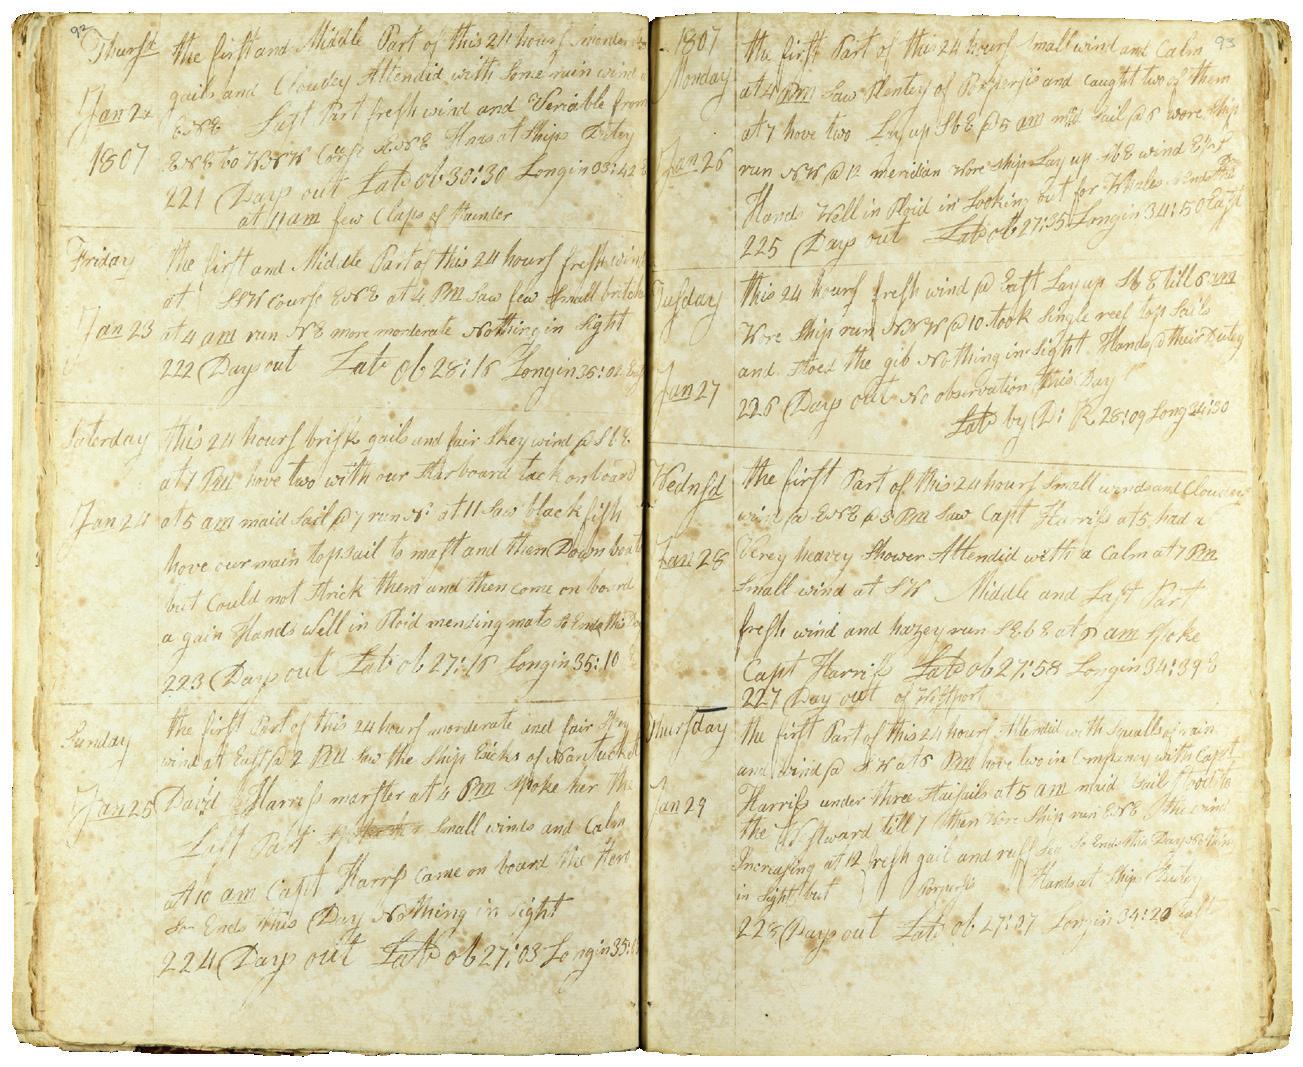 92
Thursd the first and Middle Part of this 24 hours
gails and Cloudey Attendid with Some rain wind
Jan 22 ENE Last Part fresh wind and Veriable from
1807 ENE to Hands at Ships Dutey
221 Days out Latd ob 30:30 Longin 33:42
at 11 am few Claps of thunder
Friday the first and Middle Part of this 24 hours fresh wind
at SSW Course ENE at 4 PM Saw few Small
Jan 23 at 4 am run NE more morderate Nothing in Sight
222 Days out Latd ob 28:16 Longin 35:02
Saterday this 24 hours brisk gails and fair Skey wind @ SbE
at 1 PM hove two with our Starboard tack onboard
Jan 24 at 5 am maid Sail @ 7 run N at 11 Saw black fish
hove our main topsail to mast and then Down boats
but Could not Strick them and then come on board
a gain Hands Well in Ploid mending mats So Ends this
223 Days out Latd ob 27:16 Longin 35:10
Sunday the first Part of this 24 hours morderate and fair Skey
wind at East @ 2 PM saw the Ship of Nantucket
Jan 25 David Harriss marster at 4 PM Spoke her the
Last Part Small winds and Calm
at 10 am Capt Harrss Came on board the
So Ends this Day Nothing in Sight
224 Days out Latd ob 27:03 Longin 35:
93
1807
Monday the first Part of this 24 hours Small wind and Calm
at 4 PM Saw Plentey of Porperses and Caught two of them
at 7 hove two Lay up SbE @ 5 am mad Sail @ 6 wore Ship
Jan 26 run NW @ 12 meridian Wore Ship Lay up SbE wind
Hands Well in Ploid in Looking out for Whales
225 Days out Latd ob 27:35 Longin 34:50 East
Tusday this 24 hours fresh wind @ East Lay up SbE till 6 am
Wore Ship run NNW @ 10 took Single reef top Sails
and the gib Nothing in Sight Hands @ their Dutey
Jan 27
226 Days out No observation this Day
Latd by D: R 28:09 Long 34:30
Wednsd the first Part of this 24 hours Small winds and Cloudey
wind @ ENE @ 3 PM Saw Capt Harriss at 5 had a
Jan 28 Verey heavey Shower Attendid with a Calm at 7 PM
Small wind at SW Middle and Last Part
fresh wind and hazey run SEbE at 6 am Spoke
Capt Harriss Latd ob 27:58 Longin 34:39 E
227 Day out of Westport
Thursday the first Part of this 24 hours Attendid with Squalls of rain
and wind @ SW at 6 PM hove two in Company with Capt
Jan 29 Harriss under three Staisails at 5 am maid Sail Stood to
the Westward till 7 then Wore Ship run ENE the wind
Increasing at 12 fresh gail and ruff Sea So Ends this Day Nothing
in Sight but Porperses Hands at Ship Dutey
228 Days out Latd ob 27:27 Longin 34:20 East